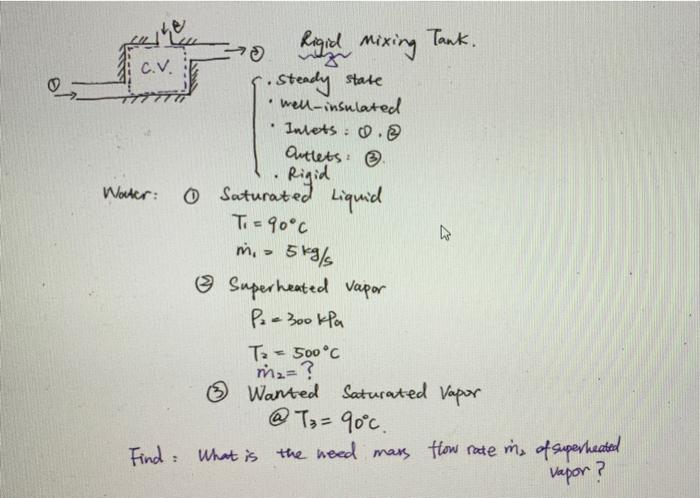 ②
→ ③
Rigid Mixing Tank.
C.V.
①
· steady state
· well-insulated
· Inlets : ①. ②
Outlets : ③.
· Rigid
Water: ① Saturated Liquid
T₁ = 90°C
ṁ₁ = 5 kg/s
② Superheated Vapor
P₂ = 300 kPa
T₂ = 500°C
ṁ₂ = ?
③ Wanted Saturated Vapor
@ T₃ = 90°C.
Find : What is the need mass flow rate ṁ₂ of superheated
vapor ?